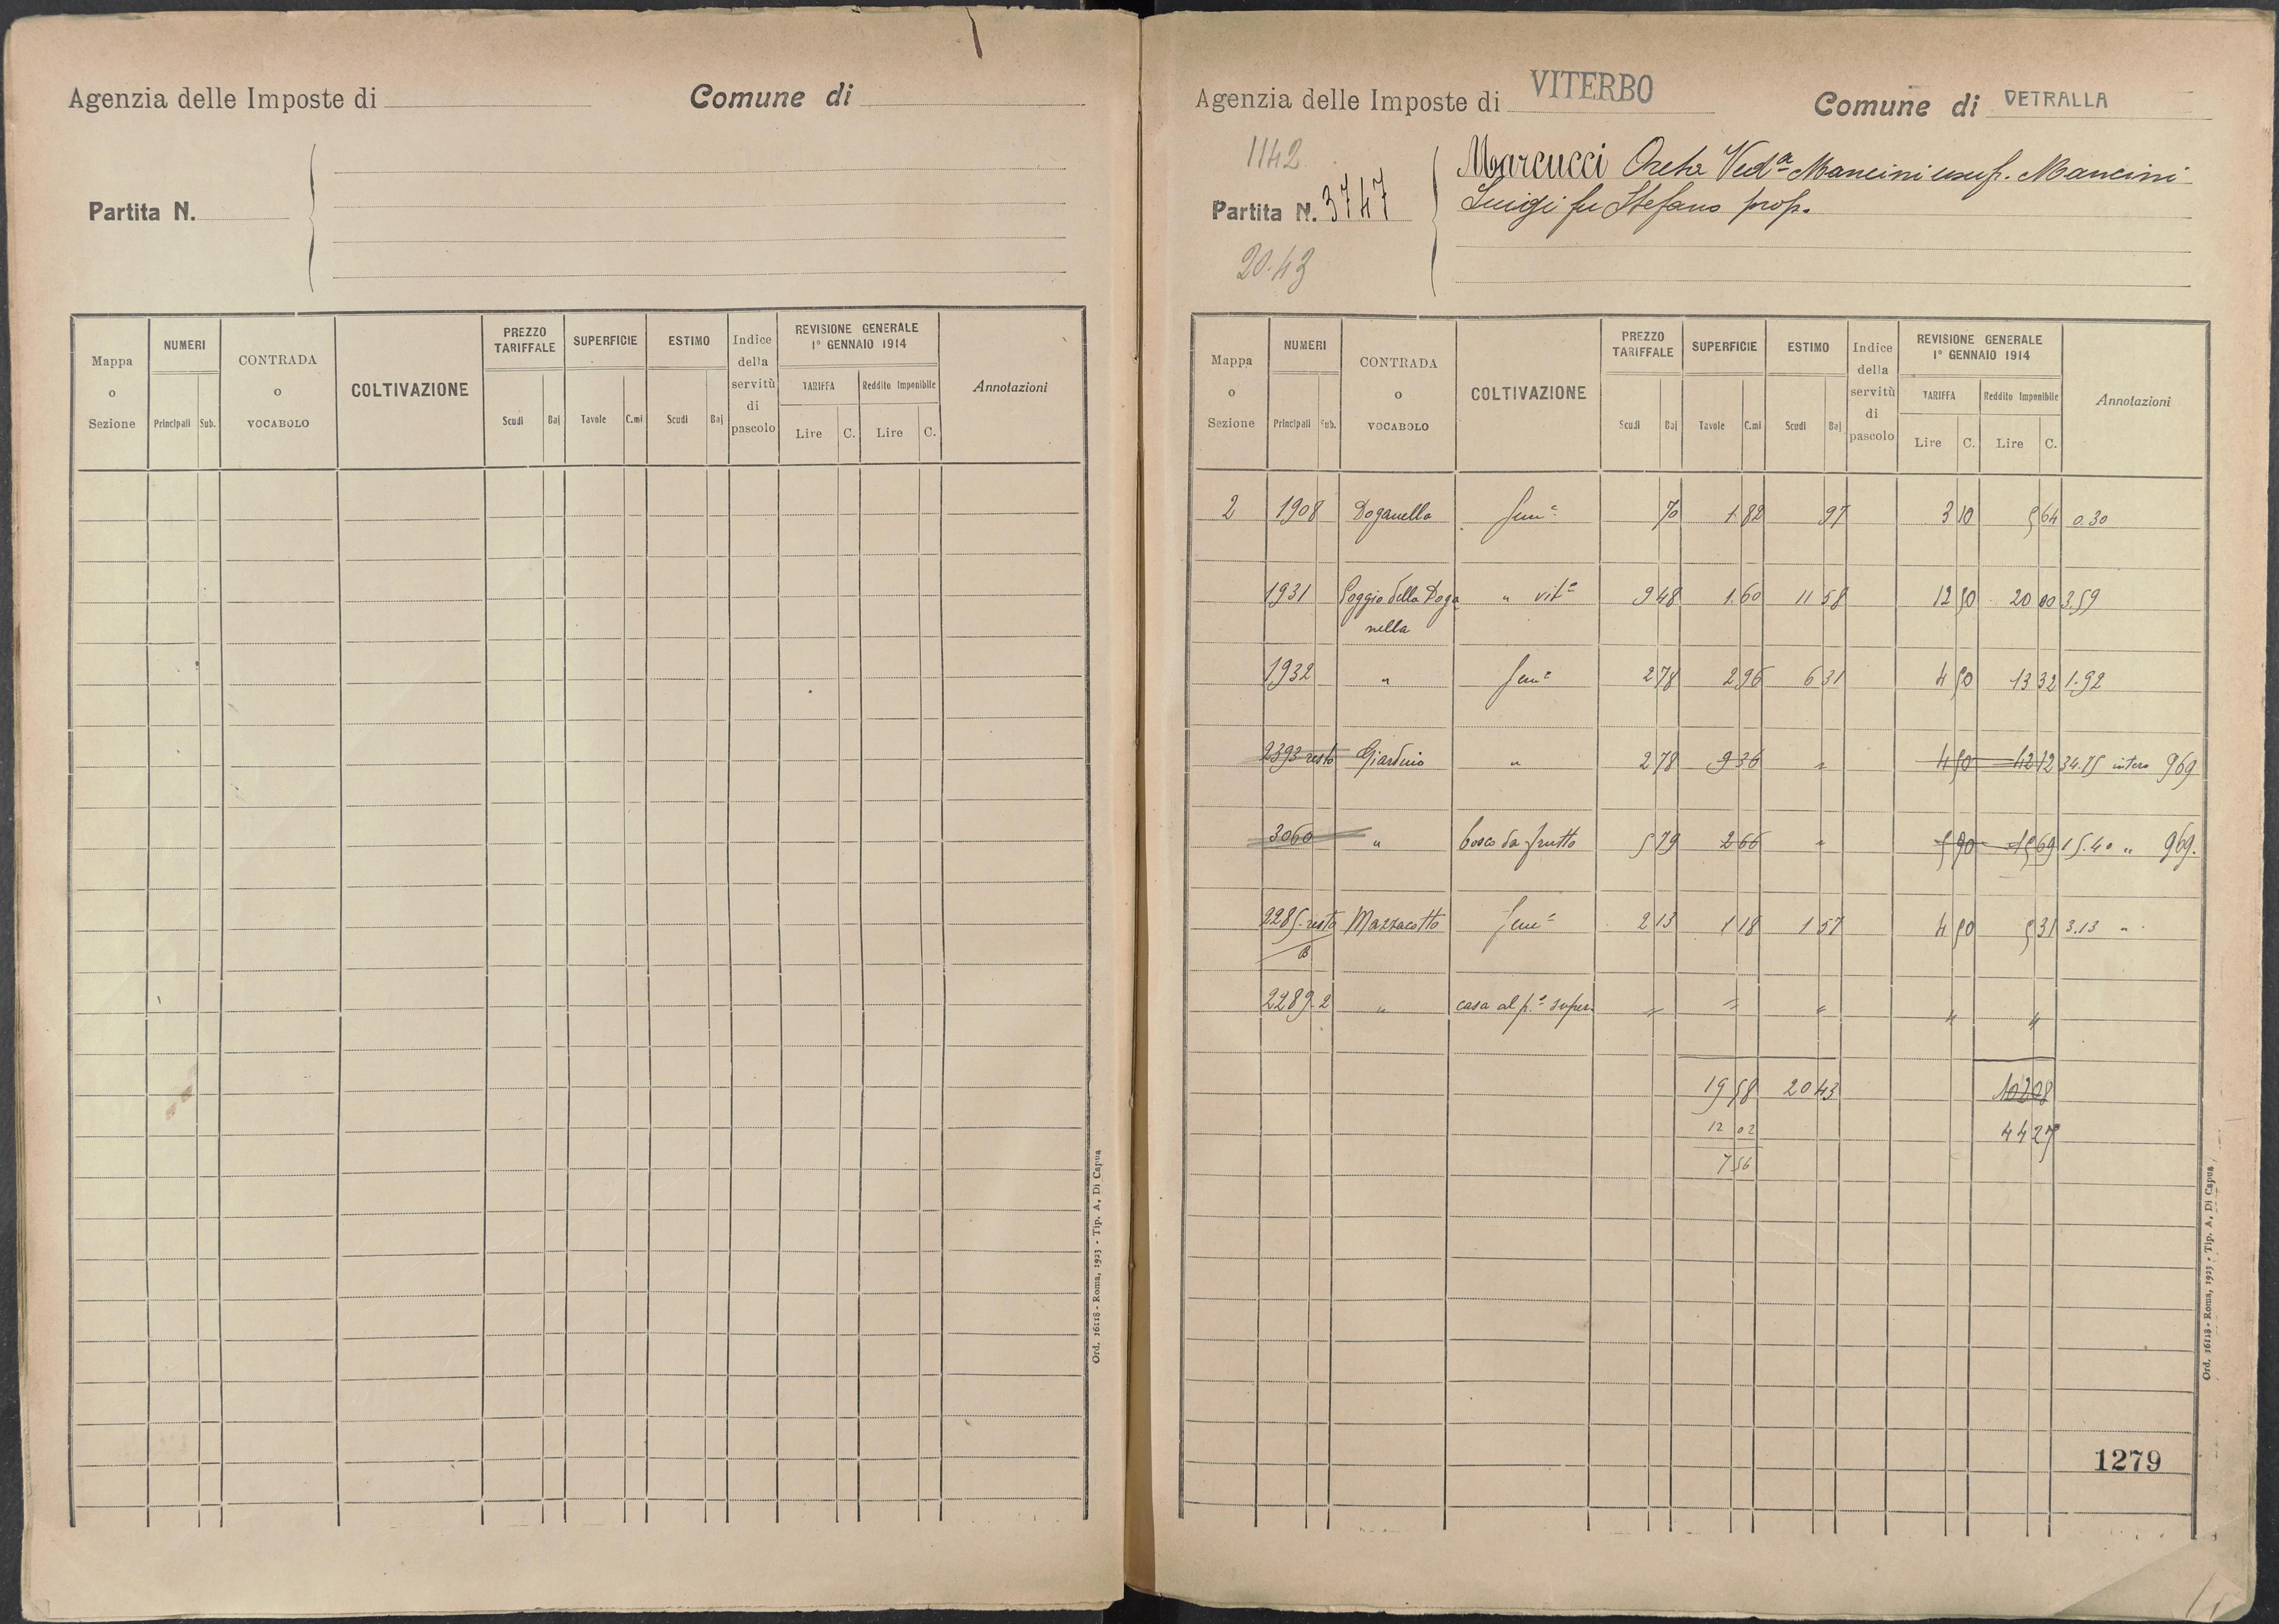 Agenzia delle Imposte di
Comune di
Partita N.
Mappa o Sezione
NUMERI
Principali Sub.
CONTRADA o VOCABOLO
COLTIVAZIONE
PREZZO TARIFFALE
Scudi Baj
SUPERFICIE
Tavole C.mi
ESTIMO
Scudi Baj
Indice della servitù di pascolo
REVISIONE GENERALE
1° GENNAIO 1914
TARIFFA
Lire C.
Reddito Imponibile
Lire C.
Annotazioni
Ord. 16118 - Roma, 1923 - Tip. A. Di Capua
Agenzia delle Imposte di VITERBO
Comune di VETRALLA
1142
Partita N. 3747
20.43
Marcucci Ved.a Mancini usuf. Mancini
Luigi fu Stefano prop.
Mappa o Sezione
NUMERI
Principali Sub.
CONTRADA o VOCABOLO
COLTIVAZIONE
PREZZO TARIFFALE
Scudi Baj
SUPERFICIE
Tavole C.mi
ESTIMO
Scudi Baj
Indice della servitù di pascolo
REVISIONE GENERALE
1° GENNAIO 1914
TARIFFA
Lire C.
Reddito Imponibile
Lire C.
Annotazioni
2 1908 Doganella Sem.e 70 1.82 97 3 10 5 64 0.30
1931 Poggio della Doga " vit.e 9 48 1.60 11 58 12 50 20 00 3.59
nella
1932 " Sem.e 2 78 2 96 6 31 4 50 13 32 1.92
2393 resto Giardino " 2 78 9 36 " 4 50 42 12 34.75 intero 969
3060 " bosco da frutto 5 79 2 66 " 5 90 15 69 15.40 " 969.
2285 resto Mazzacotto Sem.e 2 13 1 18 1 57 4 50 5 31 3.13 "
B
2289.2 " casa al p.o super. " " " " "
19 58 20 43 102 08
12 02 44 27
7 56
1279
Ord. 16118 - Roma, 1923 - Tip. A. Di Capua